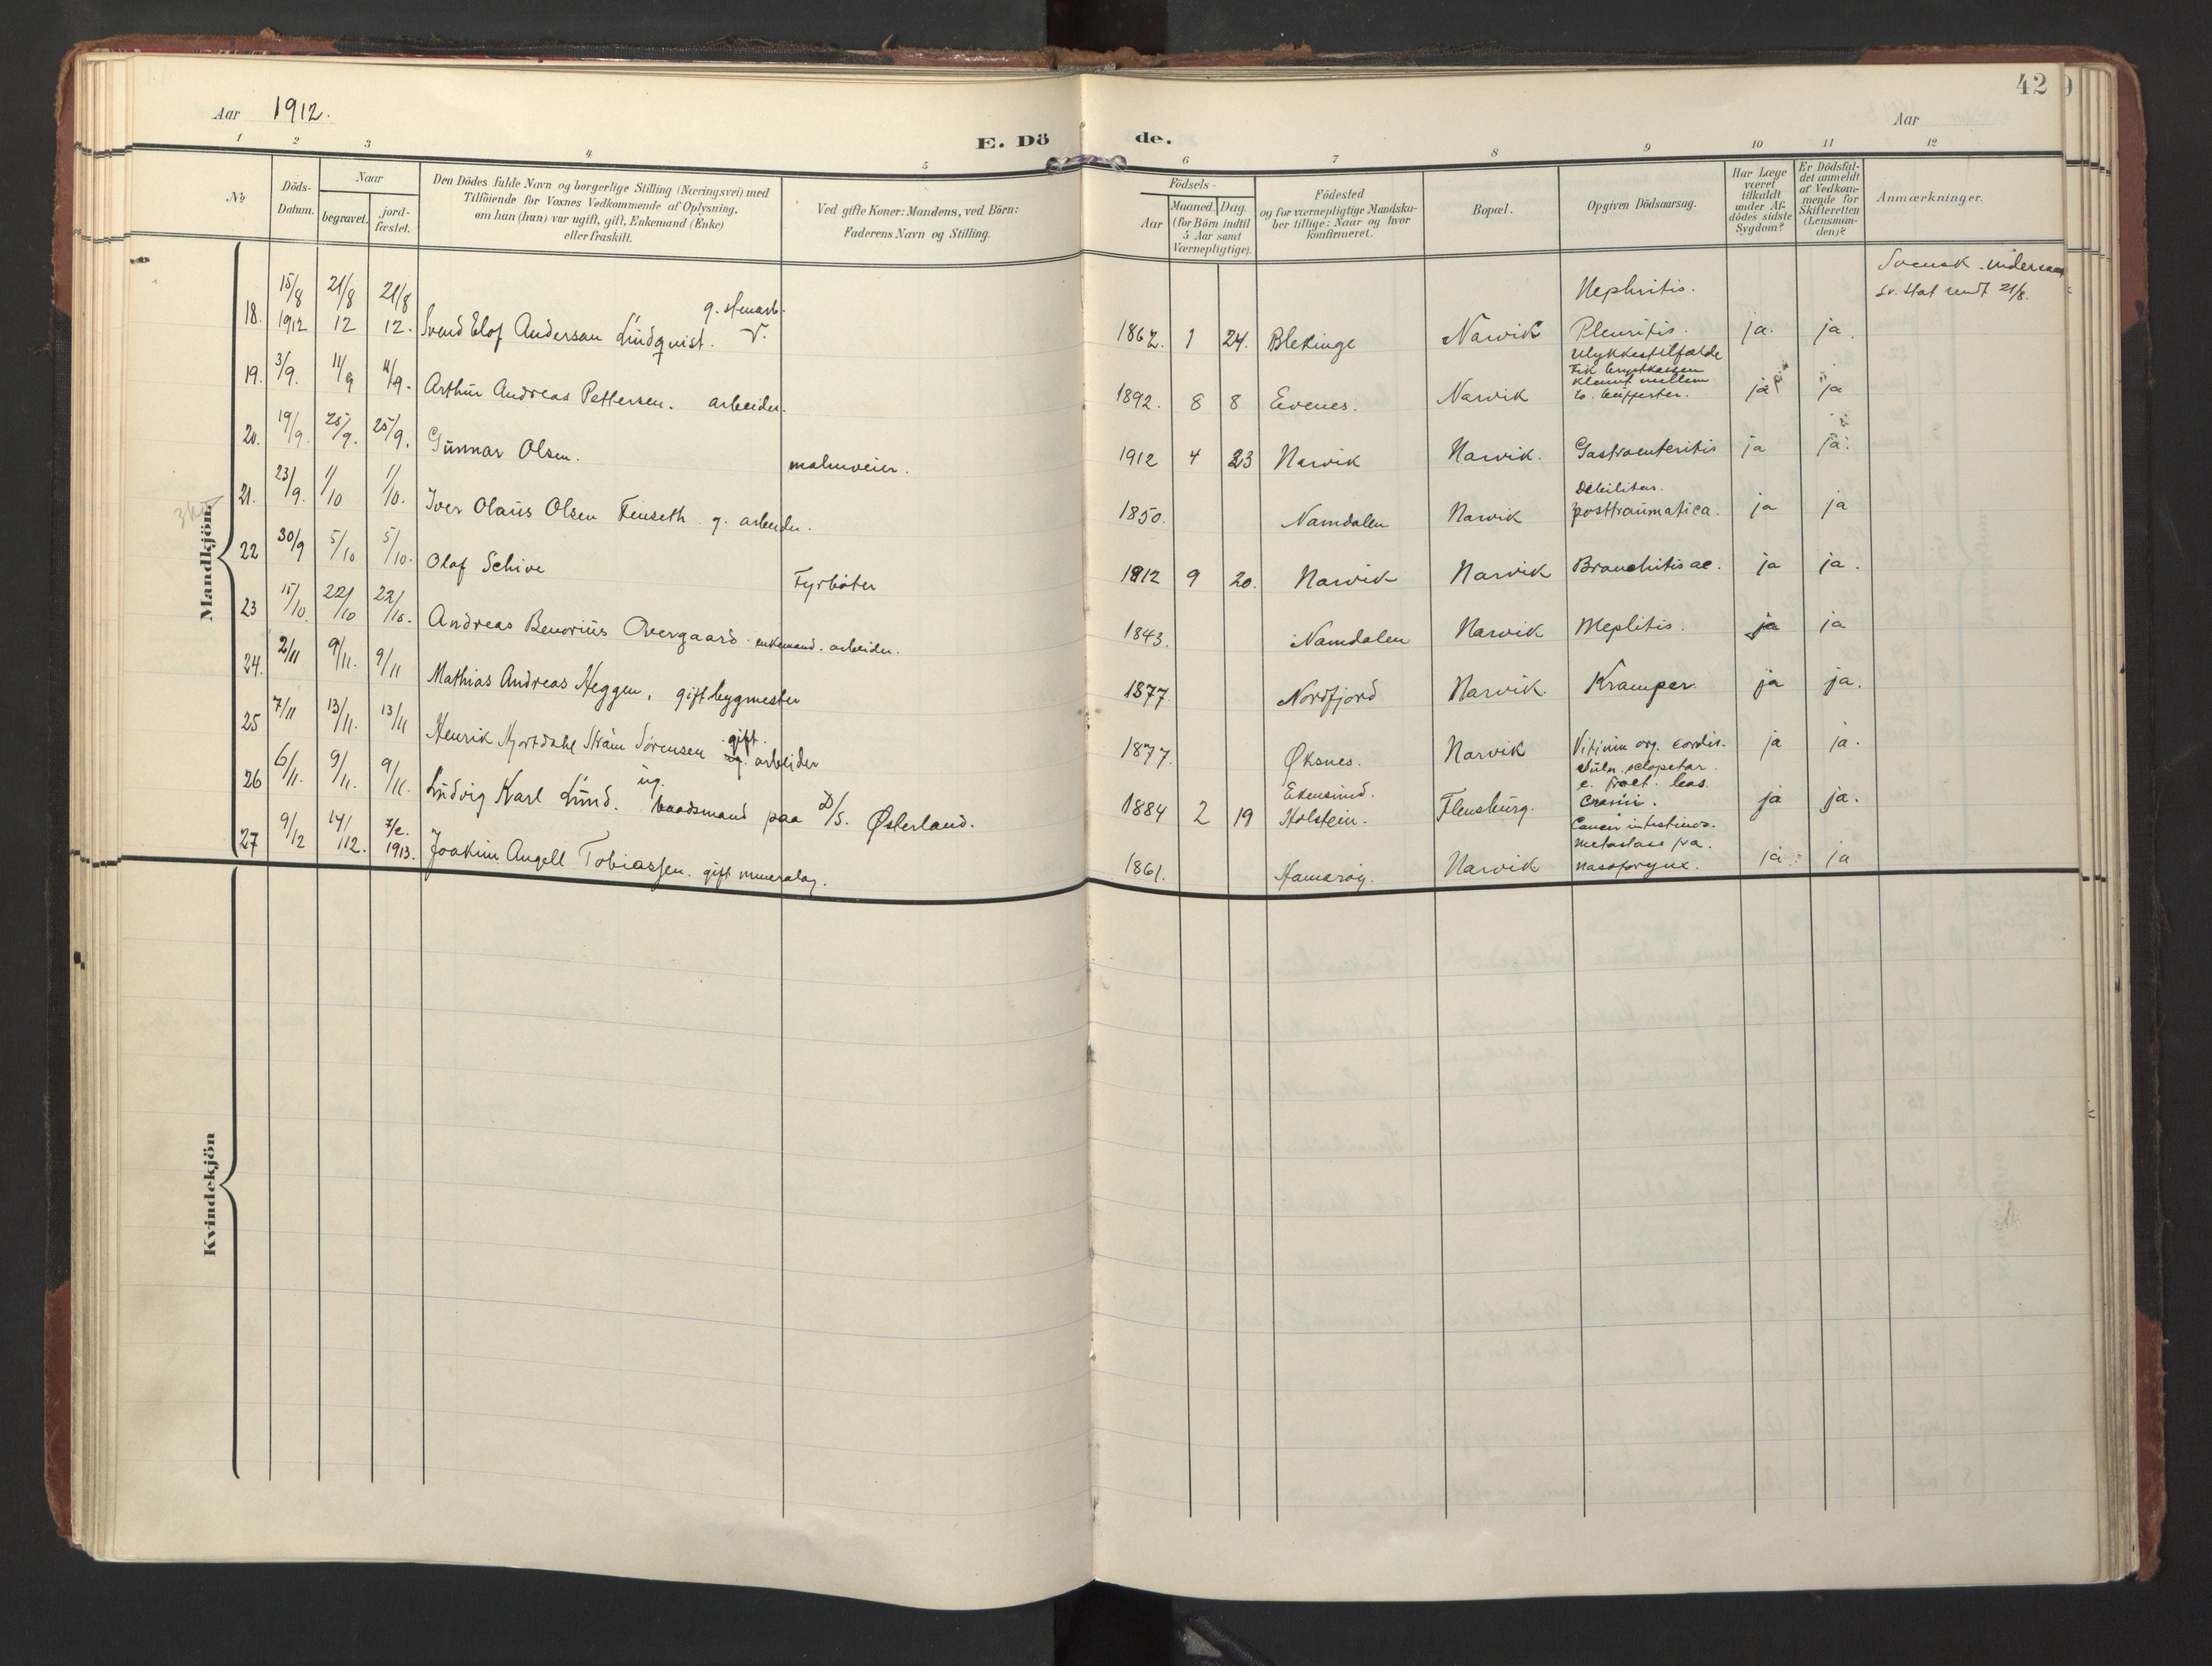 Aar 1912.
E. Dö de.
42
Aar
1 2 3 4 5 6 7 8 9 10 11 12
No
Döds-Datum.
Naar
begravet.
jord-fæstet.
Den Dödes fulde Navn og borgerlige Stilling (Næringsvei) med
Tilföiende for Voxnes Vedkommende af Oplysning,
om han (hun) var ugift, gift, Enkemand (Enke)
eller fraskilt.
Ved gifte Koner: Mandens, ved Börn:
Faderens Navn og Stilling.
Födsels-
Aar
Maaned. Dag.
(for Börn indtil
5 Aar samt
Værnepligtige).
Födested
og for værnepligtige Mandska-
ber tillige: Naar og hvor
konfirmeret.
Bopæl.
Opgiven Dödsaarsag.
Har Læge
været
tilkaldt
under Af-
dödes sidste
Sygdom?
Er Dödsfal-
det anmeldt
af Vedkom-
mende for
Skifteretten
(Lensman-
den)?
Anmærkninger.
Mandkjön
18. 15/8 1912 21/8 12 21/8 12. Svend Elof Anderson Lindquist. g. stenarb. 1862. 1 24. Blekinge Narvik Nephritis. Pleuritis. ja. ja. Svensk
21/8.
19. 3/9. 11/9 11/9. Arthur Andreas Pettersen. arbeider. 1892. 8 8 Evenes. Narvik Ulykkestilfælde
klemt mellem
to bufferter. ja ja
20. 19/9. 25/9. 25/9. Gunnar Olsen. malmveier. 1912 4 23 Narvik Narvik. Gastroenteritis ja ja.
21. 23/9. 1/10 1/10. Iver Olaus Olsen Finseth g. arbeider. 1850. Namdalen Narvik Debilitas.
posttraumatica. ja ja
22 30/9 5/10 5/10. Olaf Schive Fyrbøter 1912 9 20. Narvik Narvik Bronchitis ac. ja ja.
23 15/10. 22/10 22/10. Andreas Benorius Overgaard. enkemand. arbeider. 1843. Namdalen Narvik ja ja
24. 2/11 9/11. 9/11 Mathias Andreas Heggen, gift bygmester 1877. Nordfjord Narvik. Kramper. ja ja.
25 7/11 13/11. 13/11 Henrik Hjortdahl Strøm Sørensen gift. arbeider 1877. Øksnes. Narvik Vitium org. cordis. ja ja.
26 6/11. 9/11. 9/11. Ludvig Karl Lund. ug. baadsmand paa D/S. Østerland. 1884 2 19 Ekensund.
Holstein. Flensburg. Vuln. sclopetar.
cranii. ja ja.
27 9/12 14/12. 7/2. 1913. Joakim Angell Tobiassen. gift 1861. Hamarøy. Narvik Cancer intestinor.
metastase fra.
ja ja
Kvindekjön